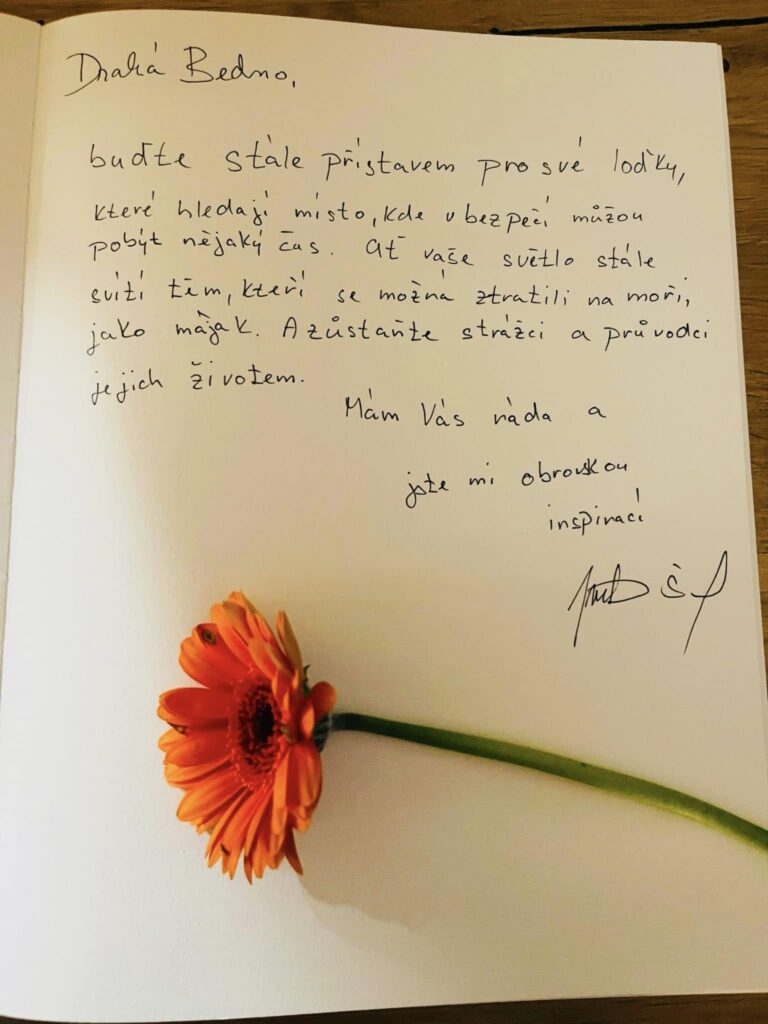 Drahá Bedno,
buďte stále přístavem pro své loďky,
které hledají místo, kde v bezpečí můžou
pobýt nějaký čas. Ať vaše světlo stále
svítí těm, kteří se možná ztratili na moři,
jako máják. A zůstaňte strážci a průvodci
jejich životem.
Mám Vás ráda a
jste mi obrovskou
inspirací